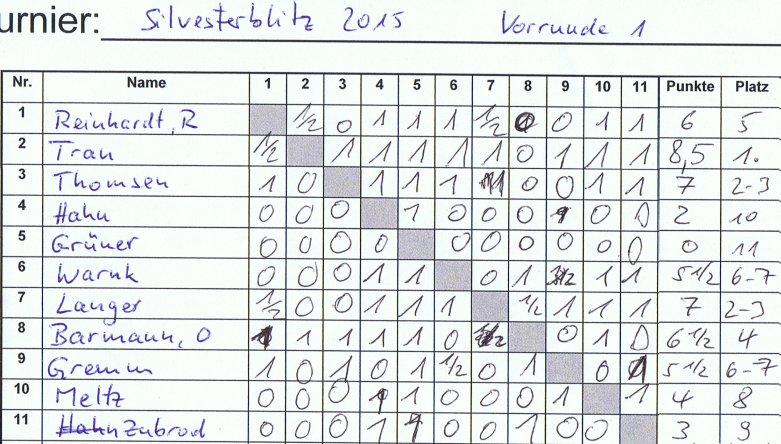 urnier: Silvesterblitz 2015 Vorrunde 1
Nr. Name 1 2 3 4 5 6 7 8 9 10 11 Punkte Platz
1 Reinhardt, R ½ 0 1 1 1 ½ 0 0 1 1 6 5
2 Tran ½ 1 1 1 1 1 0 1 1 1 8,5 1.
3 Thomsen 1 0 1 1 1 1 0 0 1 1 7 2-3
4 Hahn 0 0 0 1 0 0 0 1 0 0 2 10
5 Grüner 0 0 0 0 0 0 0 0 0 0 0 11
6 Warnk 0 0 0 1 1 0 1 ½ 1 1 5 1/2 6-7
7 Langer ½ 0 0 1 1 1 ½ 1 1 1 7 2-3
8 Barmann, O 1 1 1 1 1 0 ½ 0 1 0 6 1/2 4
9 Gremm 1 0 1 0 1 1/2 0 1 0 1 5 1/2 6-7
10 Meltz 0 0 0 1 1 0 0 0 1 1 4 8
11 Zubrod 0 0 0 1 1 0 0 1 0 0 3 9